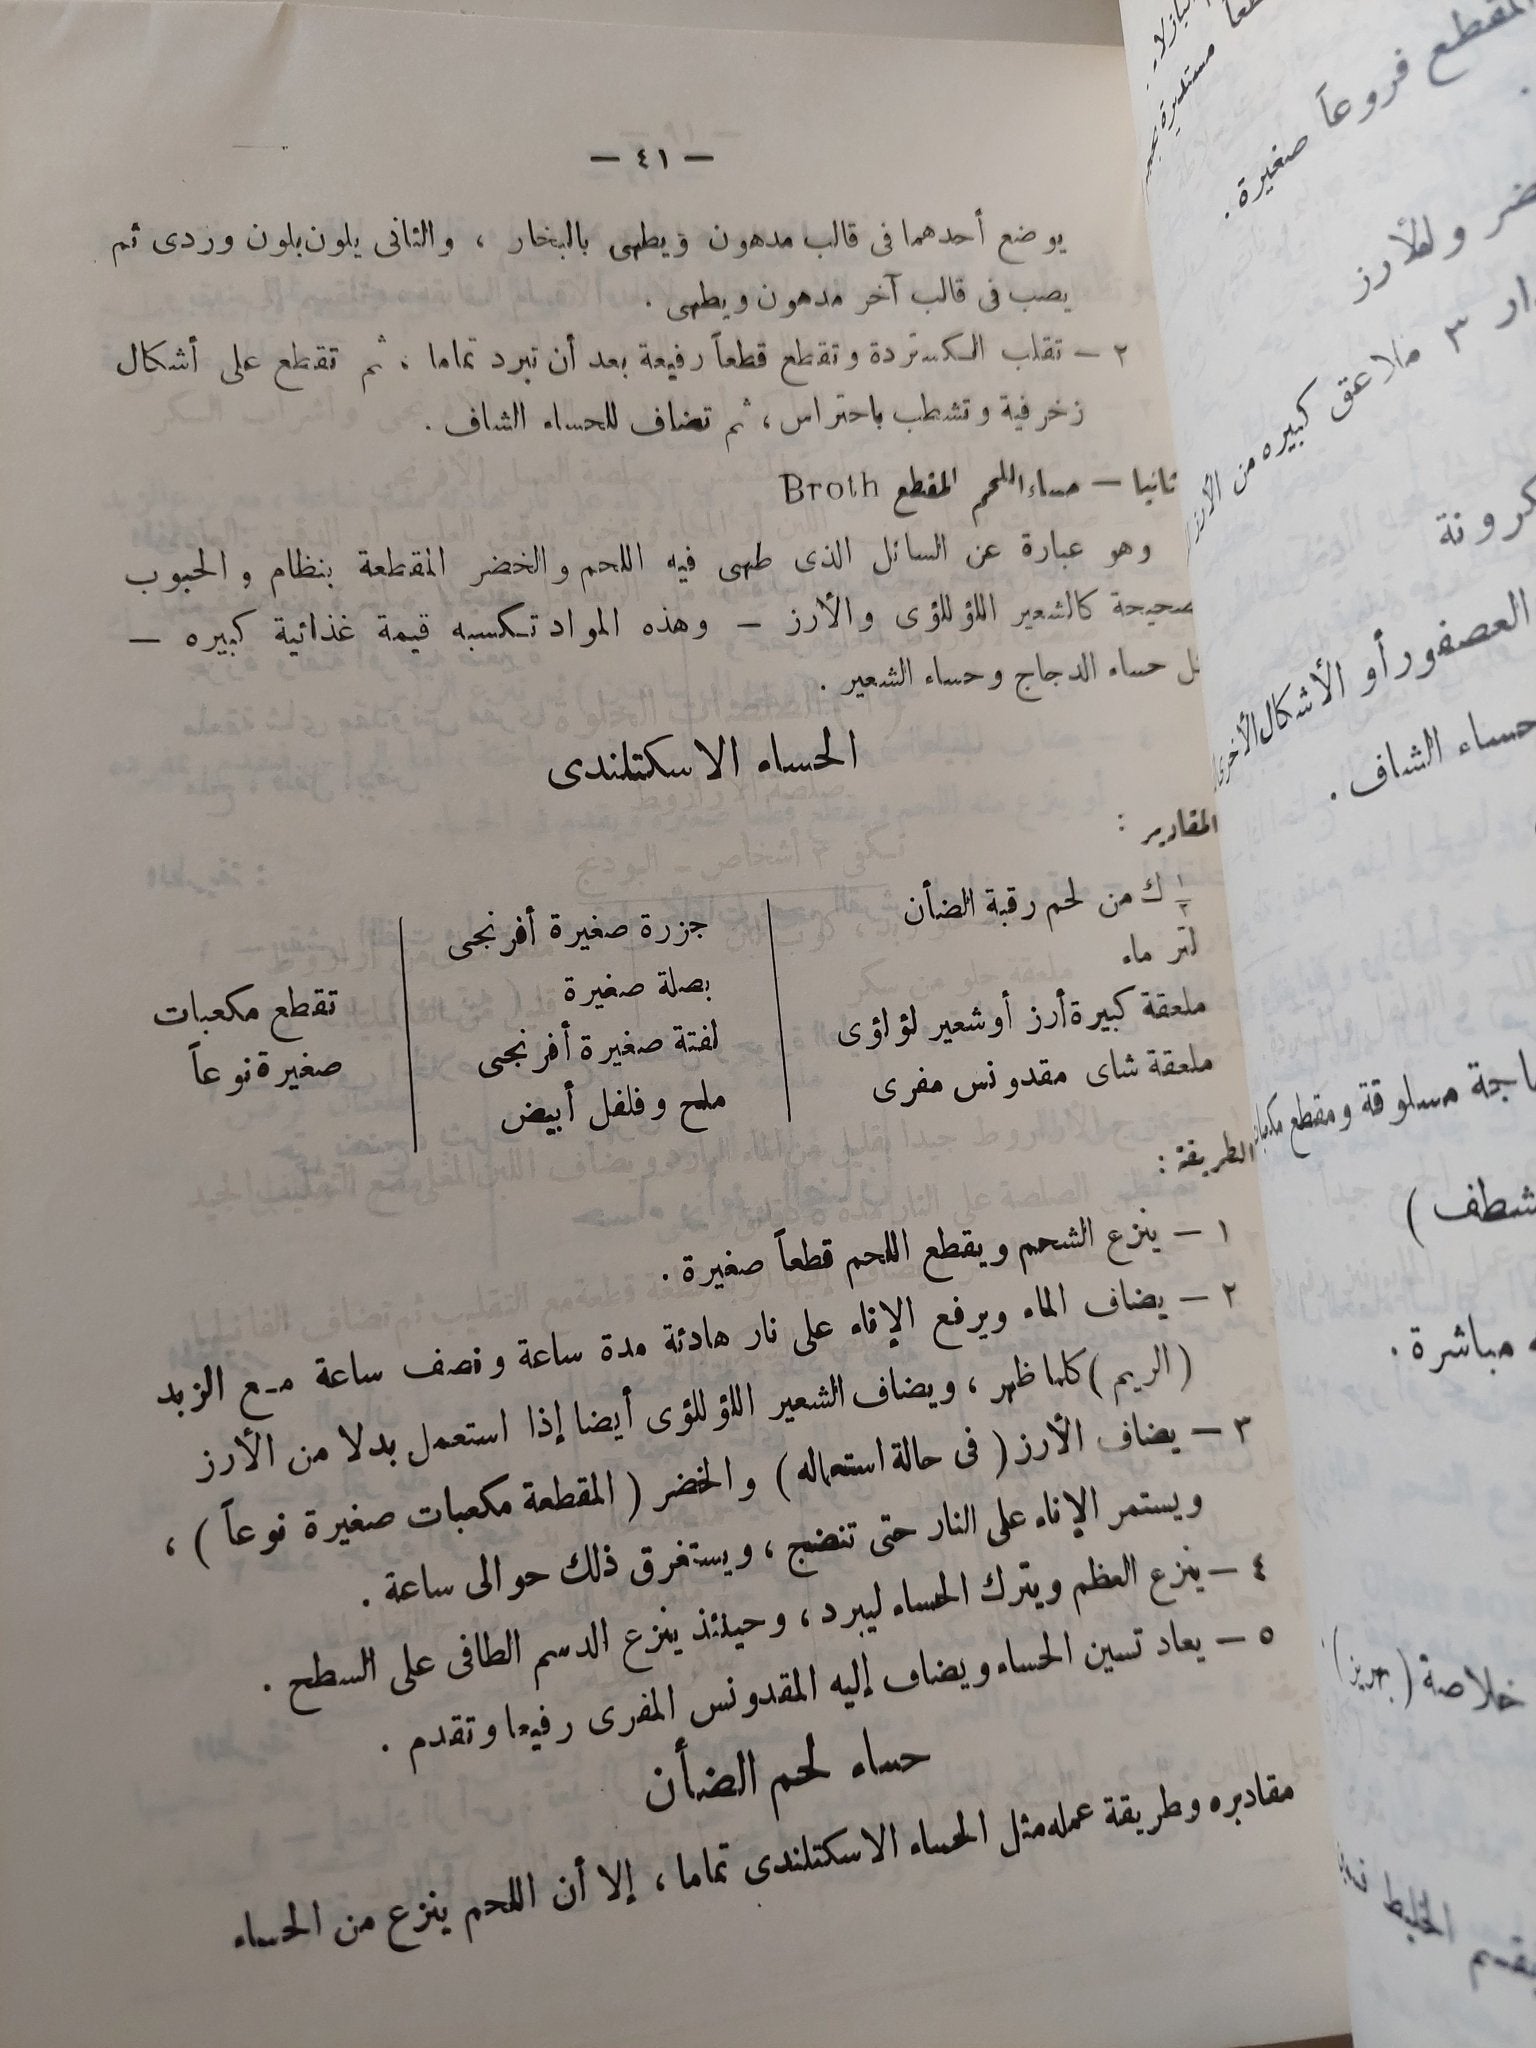 — ٤١ —
يوضع أحدهما فى قالب مدهون ويطهى بالبخار ، والثانى يلون بلون وردى ثم
يصب فى قالب آخر مدهون ويطهى .
٢ — تقلب الكستردة وتقطع قطعاً رفيعة بعد أن تبرد تماما ، ثم تقطع على أشكال
زخرفية وتشطب باحتراس ، ثم تضاف للحساء الشاف .
ثانيا — حساء اللحم المقطع Broth
وهو عبارة عن السائل الذى طهى فيه اللحم والخضر المقطعة بنظام والحبوب
صحيحة كالشعير اللؤلؤى والأرز — وهذه المواد تكسبه قيمة غذائية كبيره —
حساء الدجاج وحساء الشعير .
الحساء الاسكتلندى
المقادير :
١/٢ ك من لحم رقبة الضأن
لتر ماء
ملعقة كبيرة أرز أو شعير لؤلؤى
ملعقة شاى مقدونس مفرى
جزرة صغيرة أفرنجى
بصلة صغيرة
لفتة صغيرة أفرنجى
ملح وفلفل أبيض
تقطع مكعبات
صغيرة نوعاً
الطريقة :
١ — ينزع الشحم ويقطع اللحم قطعاً صغيرة .
٢ — يضاف الماء ويرفع الإناء على نار هادئة مدة ساعة ونصف ساعة مع الزبد
(الريم) كلما ظهر ، ويضاف الشعير اللؤلؤى أيضا إذا استعمل بدلا من الأرز
٣ — يضاف الأرز ( فى حالة استعماله ) والخضر ( المقطعة مكعبات صغيرة نوعاً ) ،
ويستمر الإناء على النار حتى تنضج ، ويستغرق ذلك حوالى ساعة .
٤ — ينزع العظم ويترك الحساء ليبرد ، وحينئذ ينزع الدسم الطافى على السطح .
٥ — يعاد تسين الحساء ويضاف إليه المقدونس المفرى رفيعا وتقدم .
حساء لحم الضأن
مقاديره وطريقة عمله مثل الحساء الاسكتلندى تماما ، إلا أن اللحم ينزع من الحساء
مستديرة
المقطع فروعاً صغيرة .
وللأرز
٣ ملاعق كبيره من الأرز
العصفور أو الأشكال الأخرى
حساء الشاف .
مسلوقة ومقطع
مباشرة .
خلاصة
الخليط